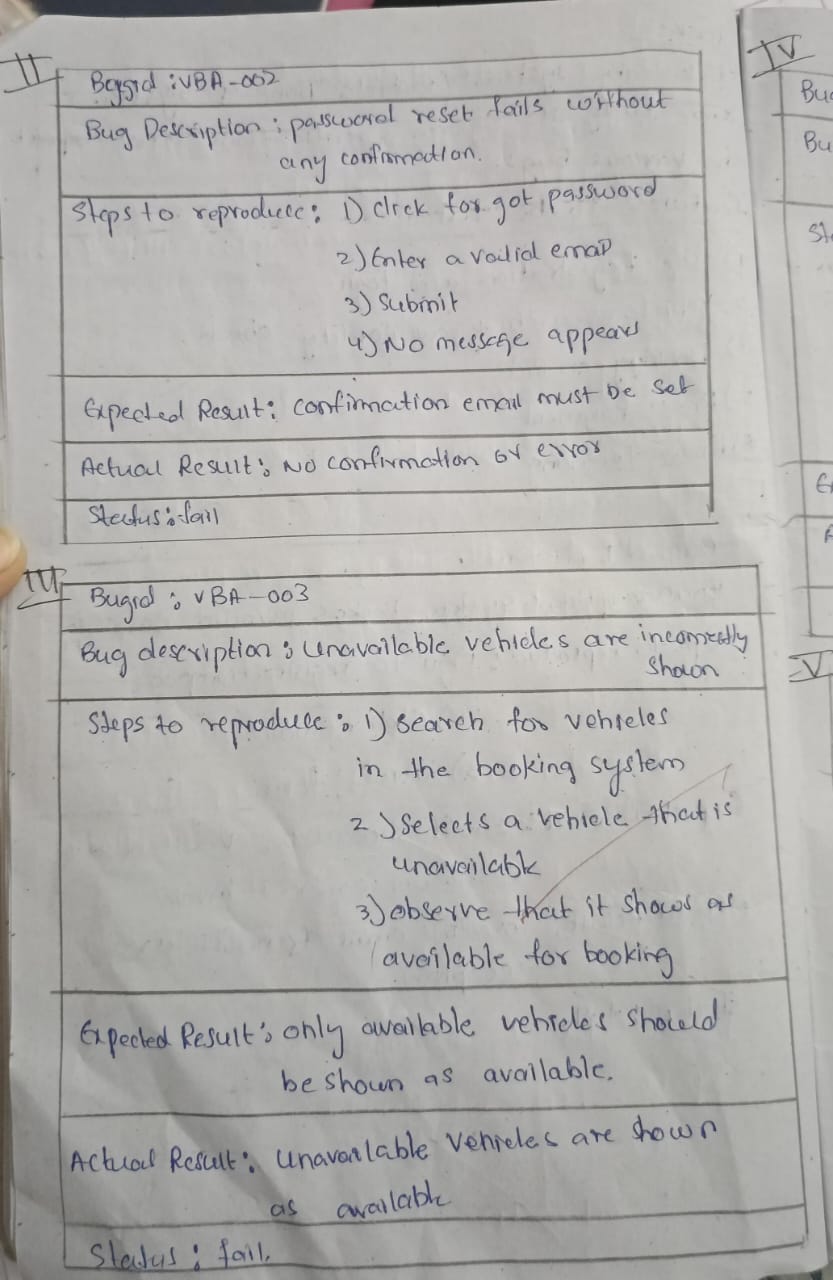 II
Bugid : VBA-002
Bug Description : password reset fails without
any confirmation.
Steps to reproduce : 1) click for got password
2) Enter a vailid email
3) Submit
4) No message appears
Expected Result : confirmation email must be set
Actual Result : No confirmation or error
Status : fail
III
Bugid : VBA-003
Bug description : unavailable vehicles are incorrectly
shown
Steps to reproduce : 1) search for vehicles
in the booking system
2) Selects a vehicle that is
unavailable
3) observe that it shows as
available for booking
Expected Result : only available vehicles should
be shown as available.
Actual Result : unavailable vehicles are shown
as available
Status : fail.
IV
Bu
Bu
St
E
A
V